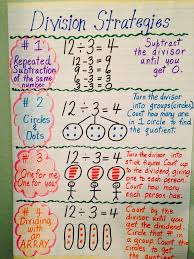 Division Strategies
# 1
Repeated
Subtraction
of the same
number
12÷3=4
12-3=9
9-3=6
6-3=3
3-3=0
Subtract
the divisor
until you
get 0.
# 2
Circles
&
Dots
12÷3=4
Turn the divisor
into groups (circles)
Count how many are
in 1 circle to find
the quotient.
# 3
One for me
One for you!
12÷3=4
Turn the divisor into
stick figures. Count up
to the dividend giving
one to each person.
Count how many
each person has.
# 4
Dividing
with
an
ARRAY
12÷3=4
Count by the
divisor until you
get the dividend.
Circle that #
in a group. Count
the circles to
get the quotient